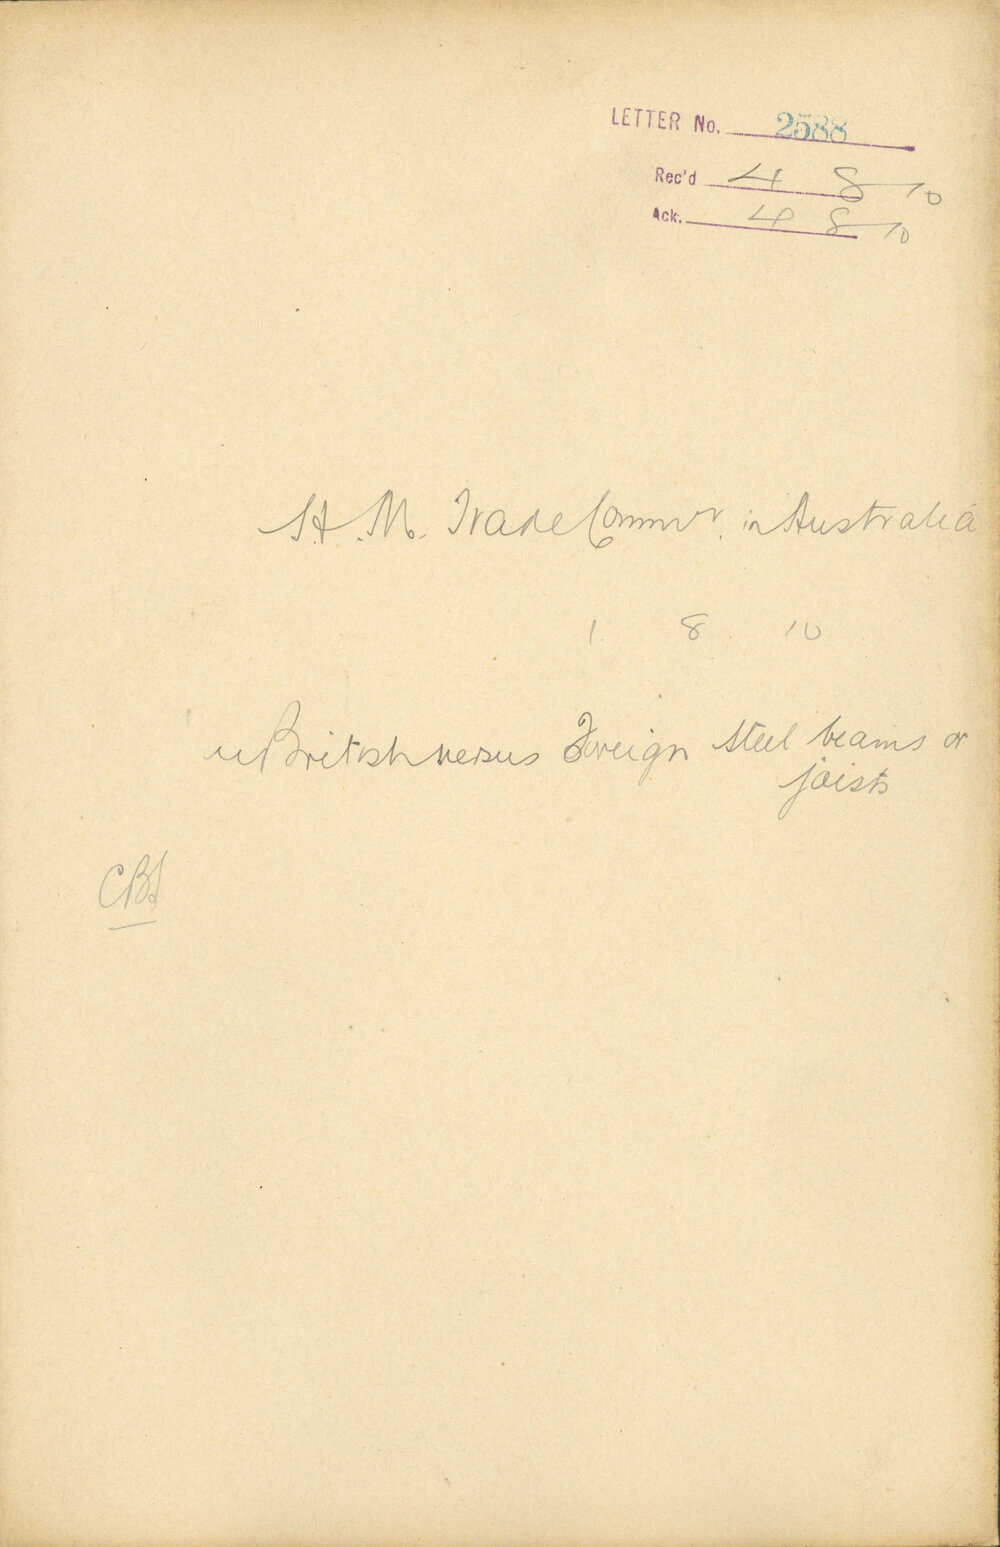 LETTER No. 2588
Rec'd 4 8 10
Ack. 4 8 10
H.M. Trade Commr. in Australia
1. 8. 10
British versus Foreign Steel beams or
joists